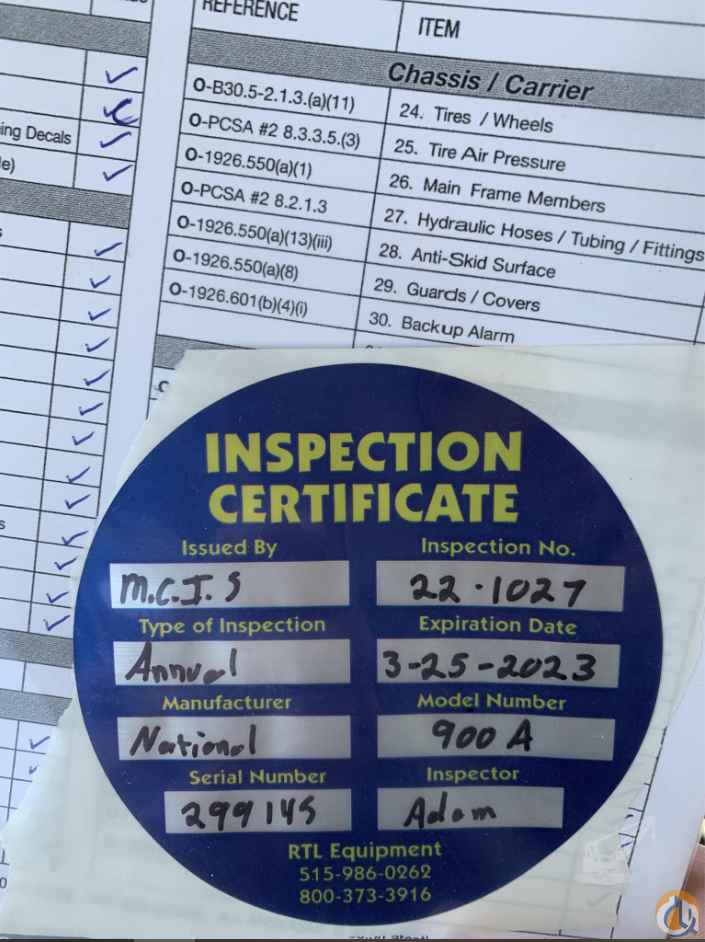 REFERENCE ITEM
Chassis / Carrier
O-B30.5-2.1.3.(a)(11) 24. Tires / Wheels
O-PCSA #2 8.3.3.5.(3) 25. Tire Air Pressure
O-1926.550(a)(1) 26. Main Frame Members
O-PCSA #2 8.2.1.3 27. Hydraulic Hoses / Tubing / Fittings
O-1926.550(a)(13)(iii) 28. Anti-Skid Surface
O-1926.550(a)(8) 29. Guards / Covers
O-1926.601(b)(4)(i) 30. Backup Alarm
Decals
INSPECTION
CERTIFICATE
Issued By Inspection No.
M.C.I.S 22-1027
Type of Inspection Expiration Date
Annual 3-25-2023
Manufacturer Model Number
National 900 A
Serial Number Inspector
299145 Adam
RTL Equipment
515-986-0262
800-373-3916